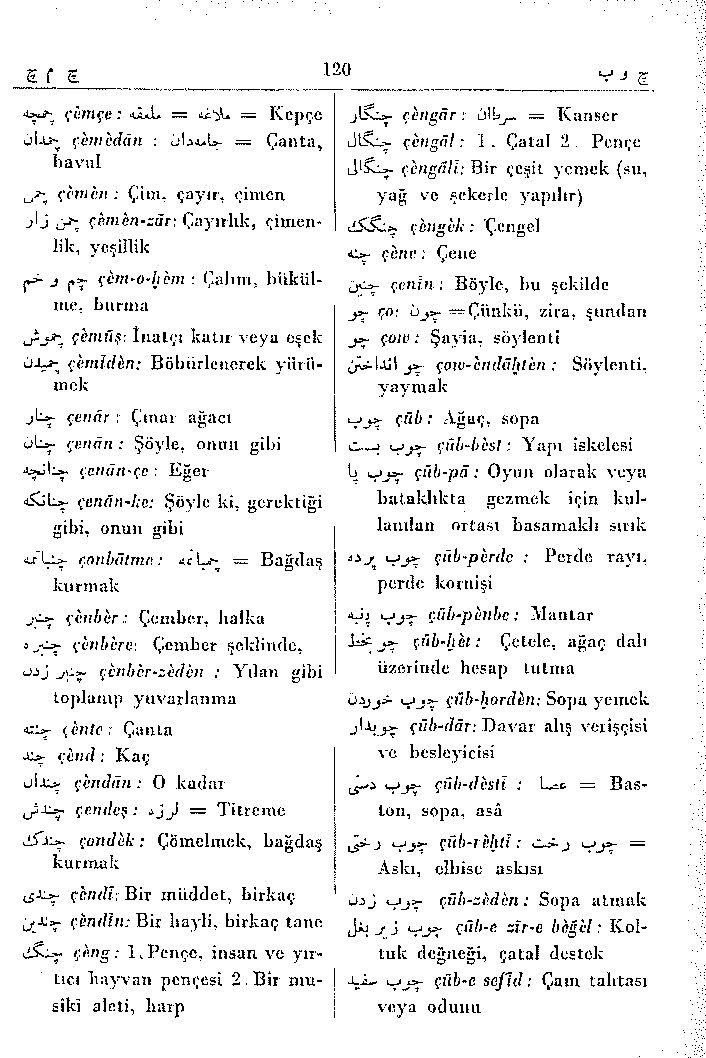 چ م چ
120
چ و ب
چمچه çèmçe: ملعقه = ملاغه = Kepçe
چمدان çèmèdān : جامه‌دان = Çanta,
bavul
چمن çèmèn : Çim, çayır, çimen
چمن زار çèmèn-zār: Çayırlık, çimen-
lik, yeşillik
چم و خم çèm-o-ḫèm : Çalım, bükül-
me, burma
چموش çèmūş: İnatçı katır veya eşek
چمیدن çèmīdèn: Böbürlenerek yürü-
mek
چنار çenār : Çınar ağacı
چنان çenān : Şöyle, onun gibi
چنانچه çenān-çe : Eğer
چنانکه çenān-ke: Şöyle ki, gerektiği
gibi, onun gibi
çonbātme: = Bağdaş
kurmak
چنبر çènbèr : Çember, halka
چنبره çènbère: Çember şeklinde,
چنبر زدن çènbèr-zèdèn : Yılan gibi
toplanıp yuvarlanma
چنته çènte : Çanta
چند çènd : Kaç
چندان çèndān : O kadar
چندش çendeş : لرزه = Titreme
چندک çondèk : Çömelmek, bağdaş
kurmak
چندی çèndī: Bir müddet, birkaç
چندین çèndīn: Bir hayli, birkaç tane
چنگ çèng : 1. Pençe, insan ve yır-
tıcı hayvan pençesi 2. Bir mu-
siki aleti, harp
چنگار çèngār : سرطان = Kanser
چنگال çèngāl : 1. Çatal 2. Pençe
چنگالی çèngālī: Bir çeşit yemek (su,
yağ ve şekerle yapılır)
چنگک çèngèk : Çengel
چنه çène : Çene
چنین çenīn : Böyle, bu şekilde
چو ço: چون = Çünkü, zira, şundan
چو çow : Şayia, söylenti
چو انداختن çow-èndāḫtèn : Söylenti,
yaymak
چوب çūb : Ağaç, sopa
چوب بست çūb-bèst : Yapı iskelesi
چوب پا çūb-pā : Oyun olarak veya
bataklıkta gezmek için kul-
lanılan ortası basamaklı sırık
چوب پرده çūb-pèrde : Perde rayı,
perde kornişi
چوب پنبه çūb-pènbe : Mantar
چوب خط çūb-ḫèt : Çetele, ağaç dalı
üzerinde hesap tutma
چوب خوردن çūb-ḫordèn: Sopa yemek
چوبدار çūb-dār: Davar alış verişçisi
ve besleyicisi
چوب دستی çūb-dèstī : عصا = Bas-
ton, sopa, asâ
چوب رختی çūb-rèḫtī : چوب رخت =
Askı, elbise askısı
چوب زدن çūb-zèdèn : Sopa atmak
چوب زیر بغل çūb-e zīr-e bèğèl : Kol-
tuk değneği, çatal destek
چوب سفید çūb-e sefīd : Çam tahtası
veya odunu